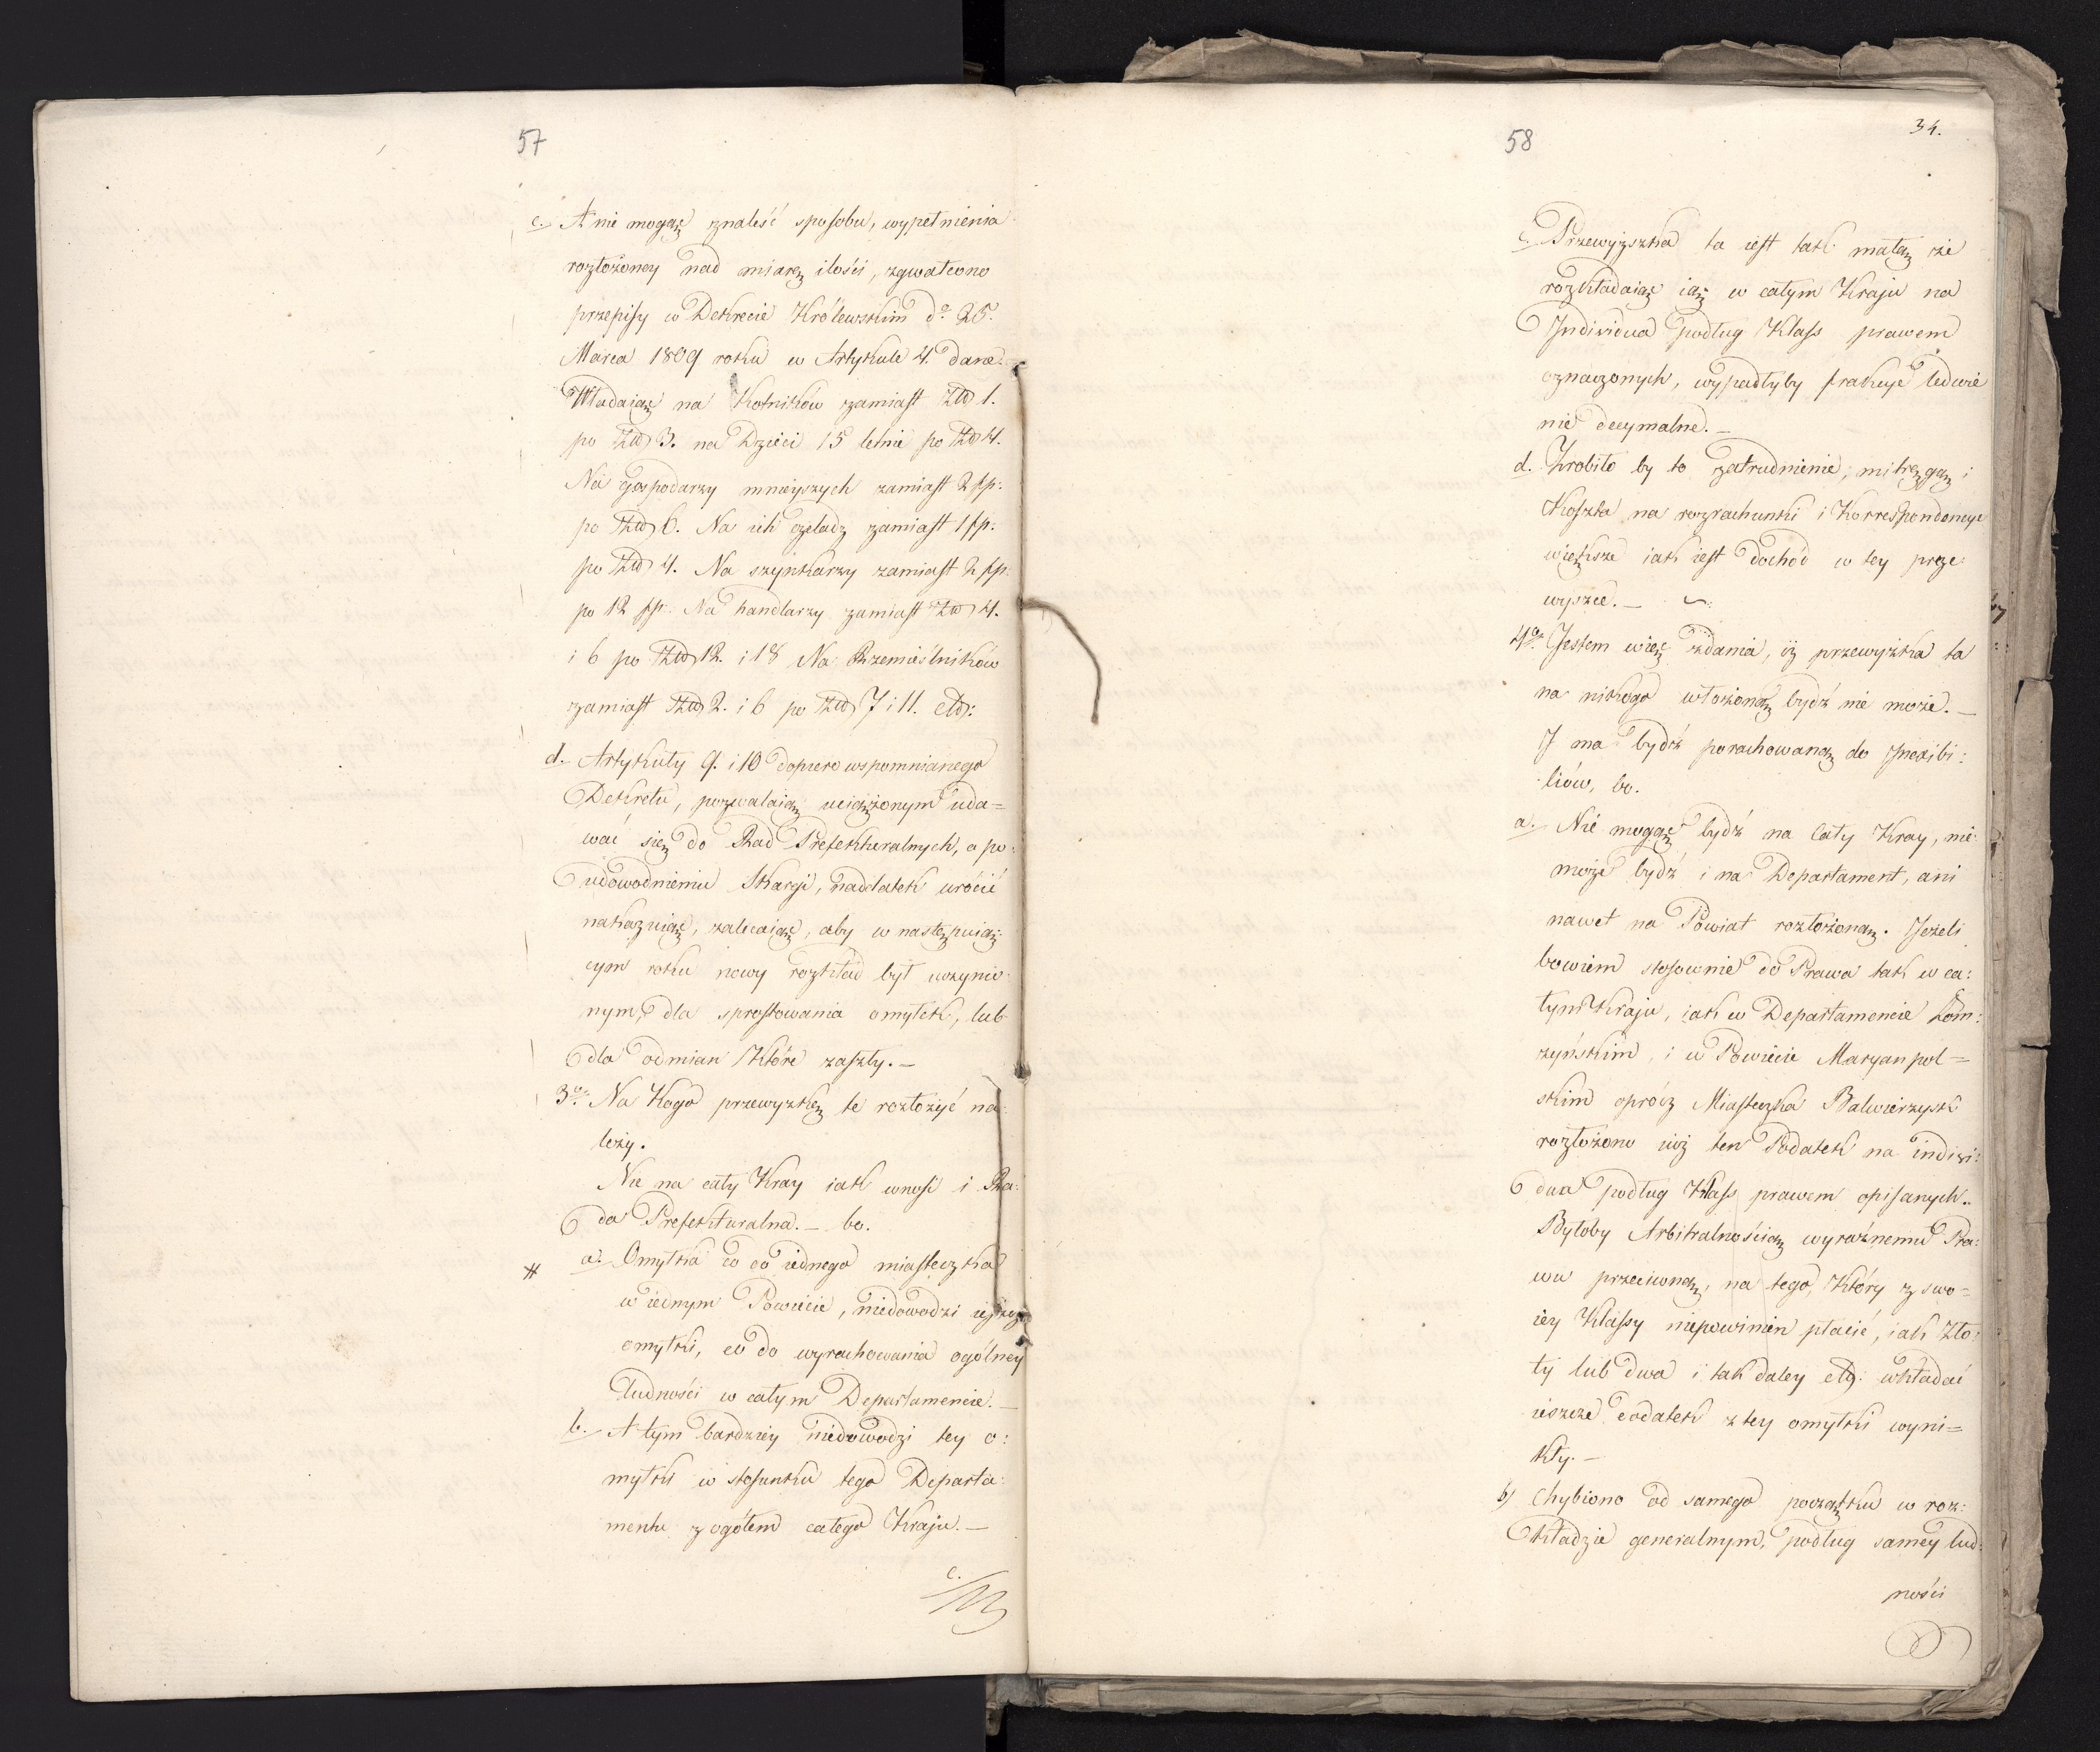 57
c. A nie mogąc znaleść sposobu, wypełnienia
rozłożoney nad miarę ilości, zgwałcono
przepisy w Dekrecie Królewskim do 25.
Marca 1809 roku w Artykule 4. dane.
Wkładaiąc na Kolników zamiast Złł 1.
po Złł 3. na Dzieci 15 letnie po Złł 4.
Na gospodarzy mnieyszych zamiast 2 fp:
po Złł 6. Na ich czeladź zamiast 1 fp:
po Złł 4. Na szynkarzy zamiast 2 fp:
po 12 fp: Na handlarzy zamiast Złł 4.
i 6 po Złł 12. i 18 Na Rzemieślników
zamiast Złł 2. i 6 po Złł 7 i 11. etc:
d. Artykuły 9. i 10 dopiero wspomnianego
Dekretu, pozwalaią uciążonym uda=
wać się do Rad Prefekturalnych, a po
udowodnieniu Skargi, naddatek wrócić
nakazuiąc, zalecaiąc, aby w następuią
cym roku nowy rozkład był uczynio
nym, dla sprostowania omyłek, lub
dla odmian które zaszły. —
3o Na Kogo przewyżkę te rozłożyć na:
leży.
Nie na cały Kray iak wnosi i Ra:
da Prefekturalna. — bo.
# a. Omyłka co do iednego miasteczka
w iednym Powiecie, niedowodzi ieszcze
omyłki, co do wyrachowania ogólney
Ludności w całym Departamencie. —
b. A tym bardziey niedowodzi tey o:
myłki w stosunku tego Departa:
mentu z ogółem całego Kraju. —
c.
58
34.
c. Przewyższka ta iest tak małą że
rozkładaiąc ią w całym Kraju na
Individua podług Klass prawem
oznaczonych, wypadłyby frakcye ledwie
nie decymalne. —
d. Zrobiło by to zatrudnienie, mitręgę i
Koszta na rozrachunki i Korrespondencye
większe iak iest dochód w tey prze:
wyszce. —
4o Jestem więc zdania, iż przewyżka ta
na nikogo włożoną bydź nie może. —
I ma bydź porachowaną do Inexibi:
liów, bo.
a. Nie mogąc bydź na Cały Kray, nie
może bydź i na Departament, ani
nawet na Powiat rozłożoną. Jeżeli
bowiem stosownie do Prawa tak w ca:
łym Kraju, iak w Departamencie Łom:
żyńskim, i w Powiecie Maryanpol=
skim oprócz Miasteczka Balwierzysk
rozłożono iuż ten Podatek na indivi:
dua podług Klass prawem opisanych.
Byłoby Arbitralnością wyraźnemu Pra:
wu przeciwną, na tego, który z swo=
iey Klassy niepowinien płacić, iak Zło:
ty lub dwa i tak daley etc: wkładać
ieszcze dodatek z tey omyłki wyni=
kły. —
b) Chybiono od samego początku w roz:
kładzie generalnym, podług samey lud:
ności